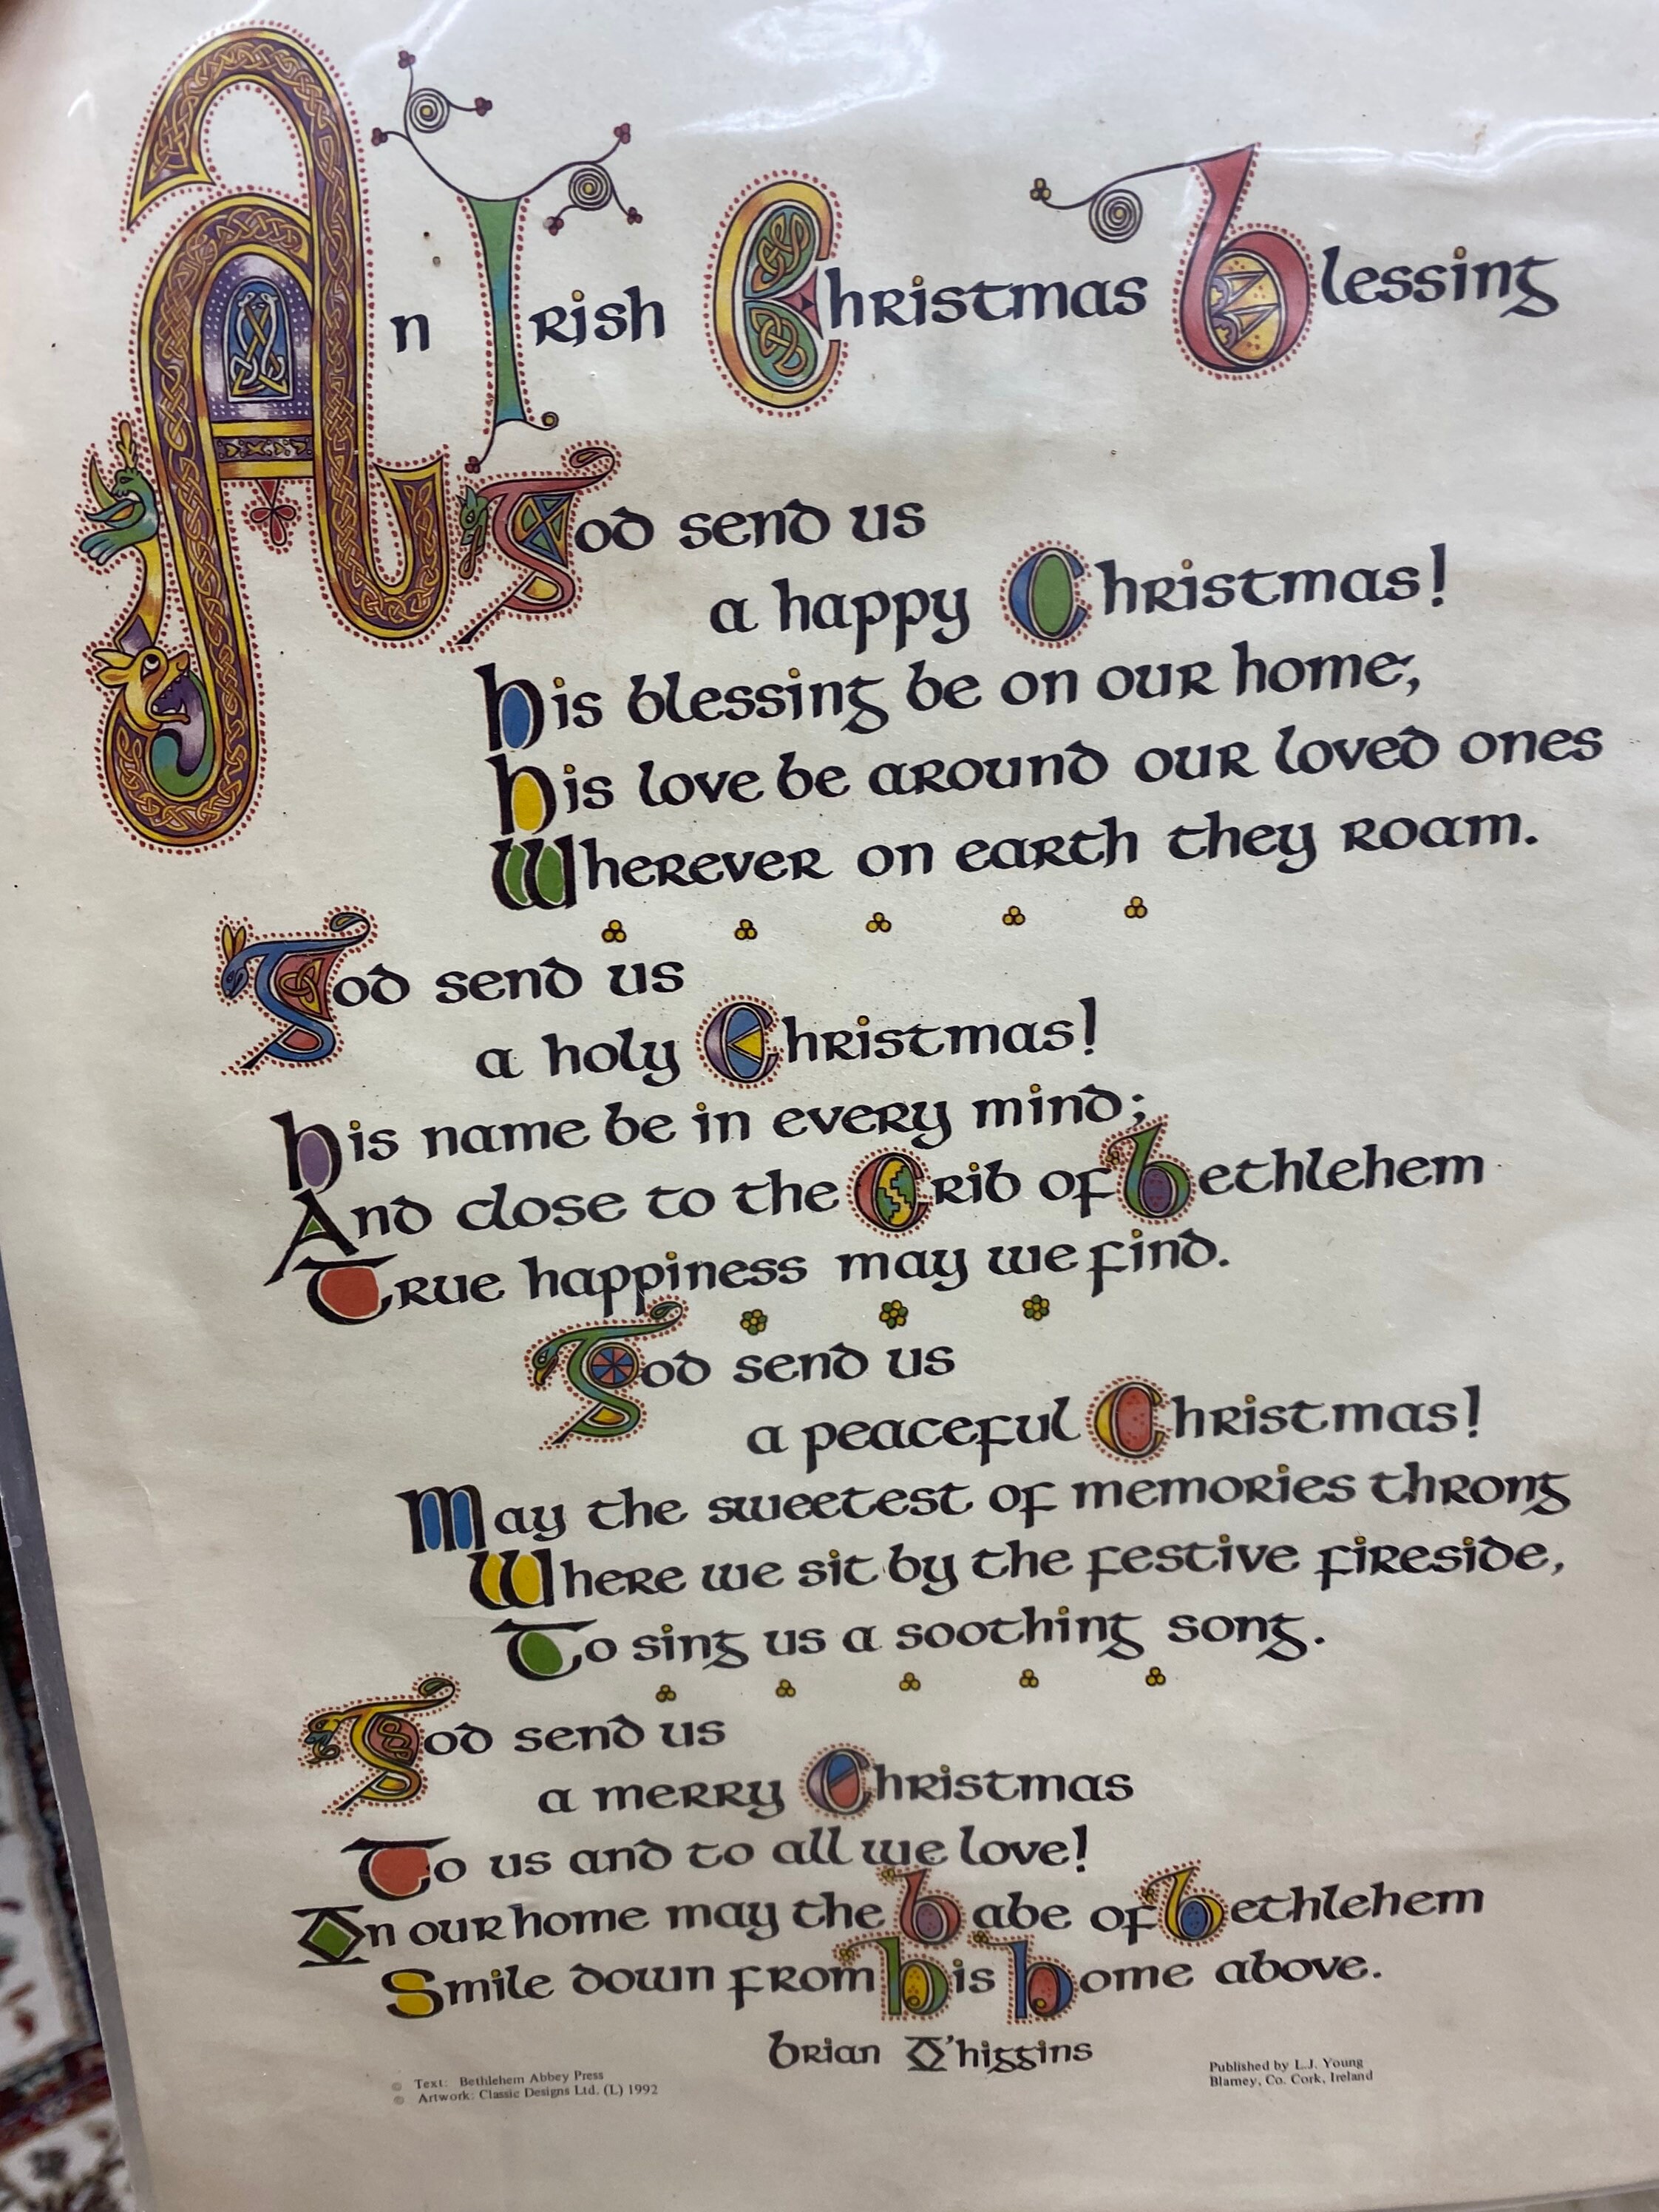 An Irish Christmas Blessing
God send us
a happy Christmas!
His blessing be on our home;
His love be around our loved ones
Wherever on earth they roam.
God send us
a holy Christmas!
His name be in every mind;
And close to the Crib of Bethlehem
True happiness may we find.
God send us
a peaceful Christmas!
May the sweetest of memories throng
Where we sit by the festive fireside,
To sing us a soothing song.
God send us
a merry Christmas
To us and to all we love!
On our home may the Babe of Bethlehem
Smile down from His Home above.
Brian O'Higgins
© Text: Bethlehem Abbey Press
© Artwork: Classic Designs Ltd. (L) 1992
Published by L.J. Young
Blarney, Co. Cork, Ireland